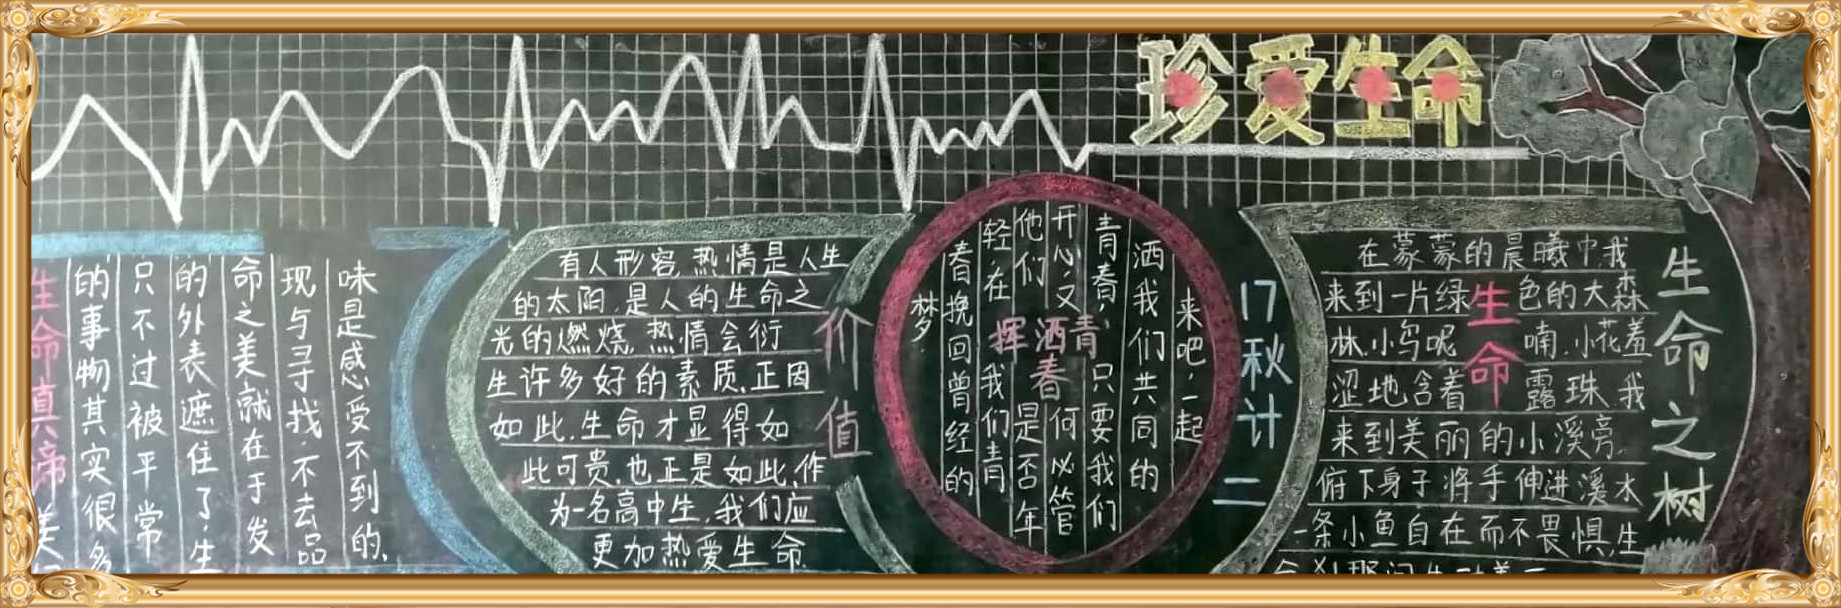 珍爱生命
生命真谛
美
的事物其实很多
只不过被平常
的外表遮住了.生
命之美就在于发
现与寻找.不去品
味是感受不到的.
价值
有人形容,热情是人生
的太阳.是人的生命之
光的燃烧.热情会衍
生许多好的素质.正因
如此.生命才显得如
此可贵.也正是如此.作
为一名高中生.我们应
更加热爱生命.
挥洒青春
来吧,一起
洒我们共同的
青春,只要我们
开心又何必管
他们是否年
轻在我们青
春挽回曾经的
梦.
17秋计二
生命之树
生命
在蒙蒙的晨曦中我
来到一片绿色的大森
林.小鸟呢喃.小花羞
涩地含着露珠.我
来到美丽的小溪旁.
俯下身子将手伸进溪水
一条小鱼自在而不畏惧,生